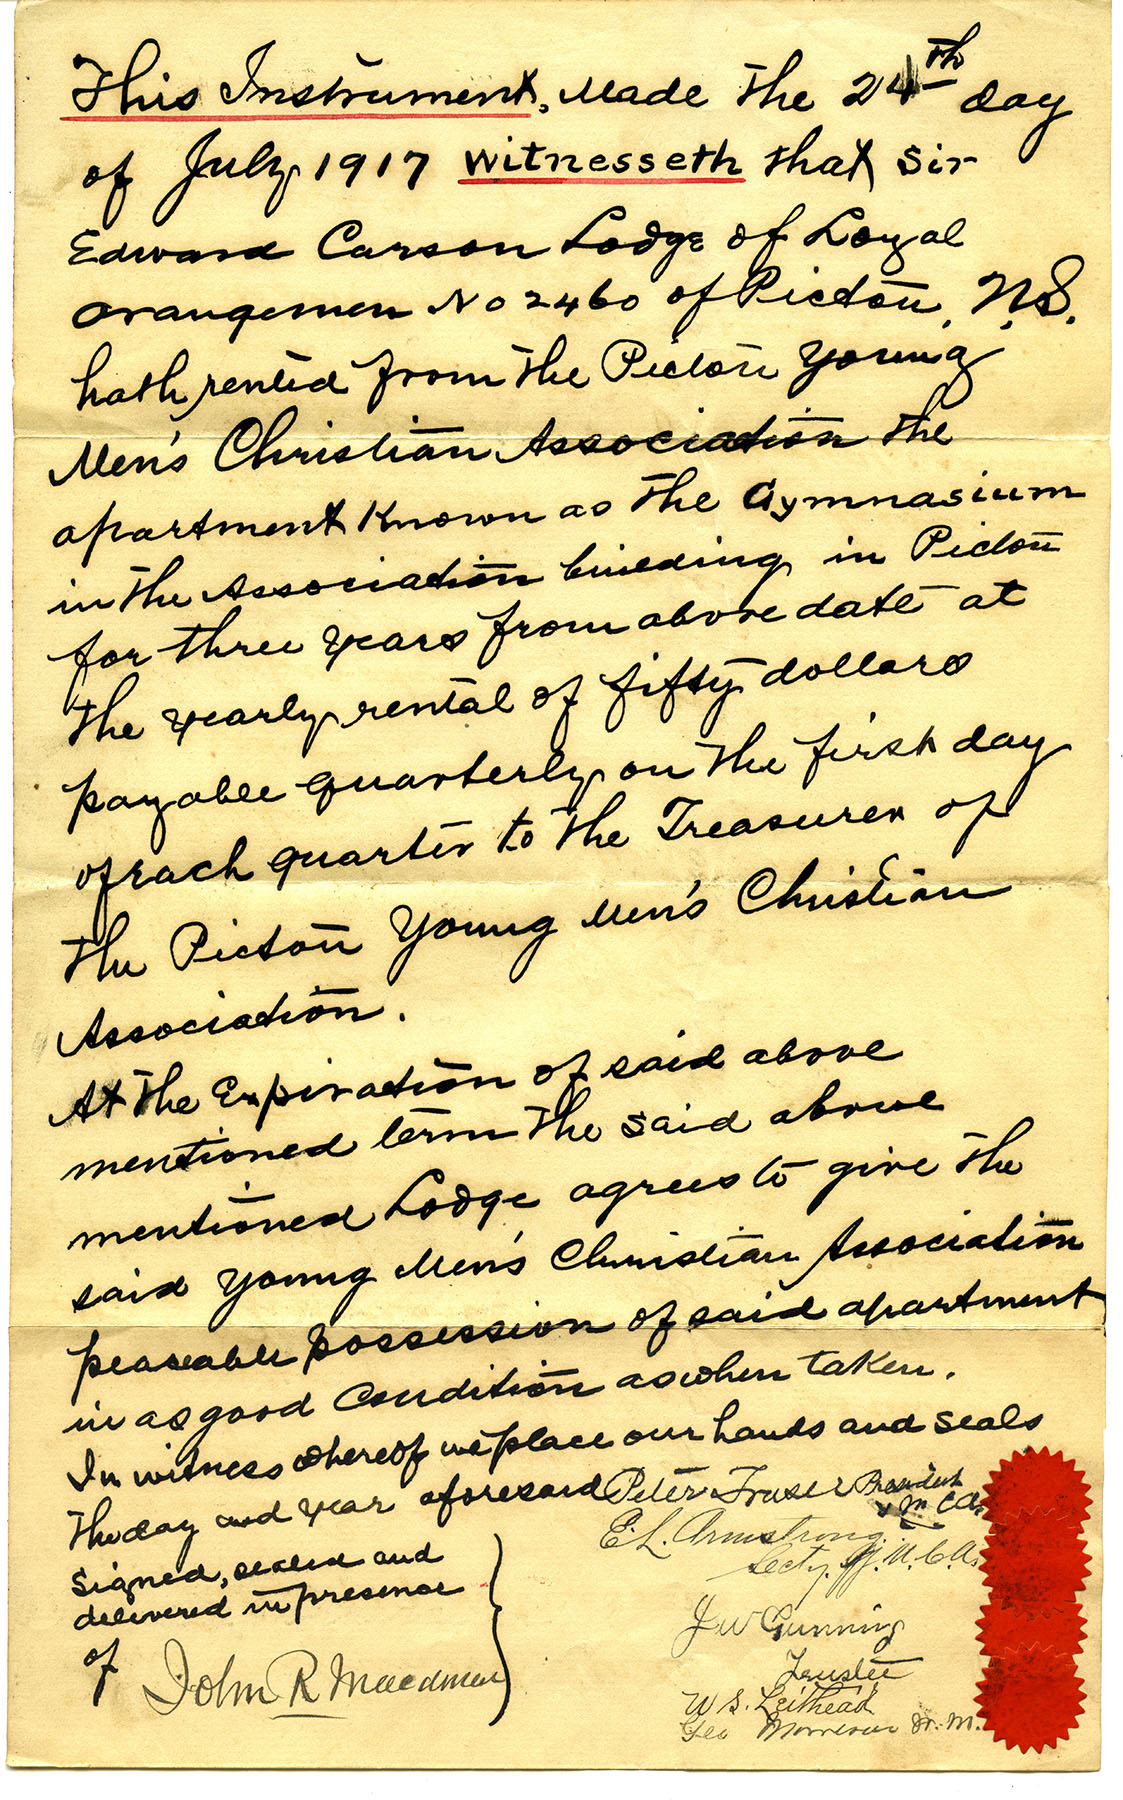 This Instrument, Made the 24th day
of July 1917 witnesseth that Sir
Edward Carson Lodge of Loyal
Orangemen No 2460 of Pictou, N.S.
hath rented from the Pictou Young
Men's Christian Association the
apartment known as the Gymnasium
in the Association building in Pictou
for three years from above date at
the yearly rental of fifty dollars
payable quarterly on the first day
of each quarter to the Treasurer of
the Pictou Young Men's Christian
Association.
At the Expiration of said above
mentioned term the said above
mentioned Lodge agrees to give the
said Young Men's Christian Association
peaseable possession of said apartment
in as good condition as when taken.
In witness whereof we place our hands and seals
the day and year aforesaid Peter Fraser President
Y M C A.
E. L. Armstrong
Secty. Y. M. C. A.
Signed, sealed and
delivered in presence
of
John R
J W Gunning
Trustee
W S. Leithead
Geo Morrison W. M.